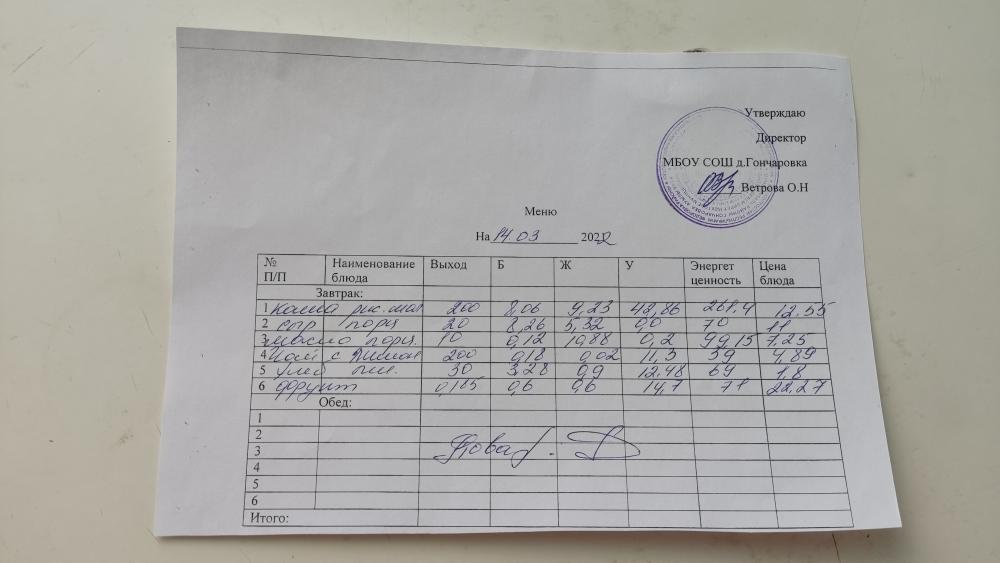 Утверждаю
Директор
МБОУ СОШ д.Гончаровка
Ветрова О.Н
Меню
На 14.03 2022
№ П/П Наименование блюда Выход Б Ж У Энергет ценность Цена блюда
Завтрак:
1 Каша рис. мол 200 8,06 9,23 42,86 261,4 12.55
2 Сыр порц 20 8,26 5,32 0,0 70 11
3 масло порц. 10 0,12 10,88 0,2 99,15 7,25
4 Чай с Лимон 200 0,18 0,02 11,3 39 4,89
5 хлеб пш. 30 3,28 0,9 12,48 69 1,8
6 фрукт 0,185 0,6 0,6 14,7 71 22,27
Обед:
1
2
3
4
5
6
Итого: